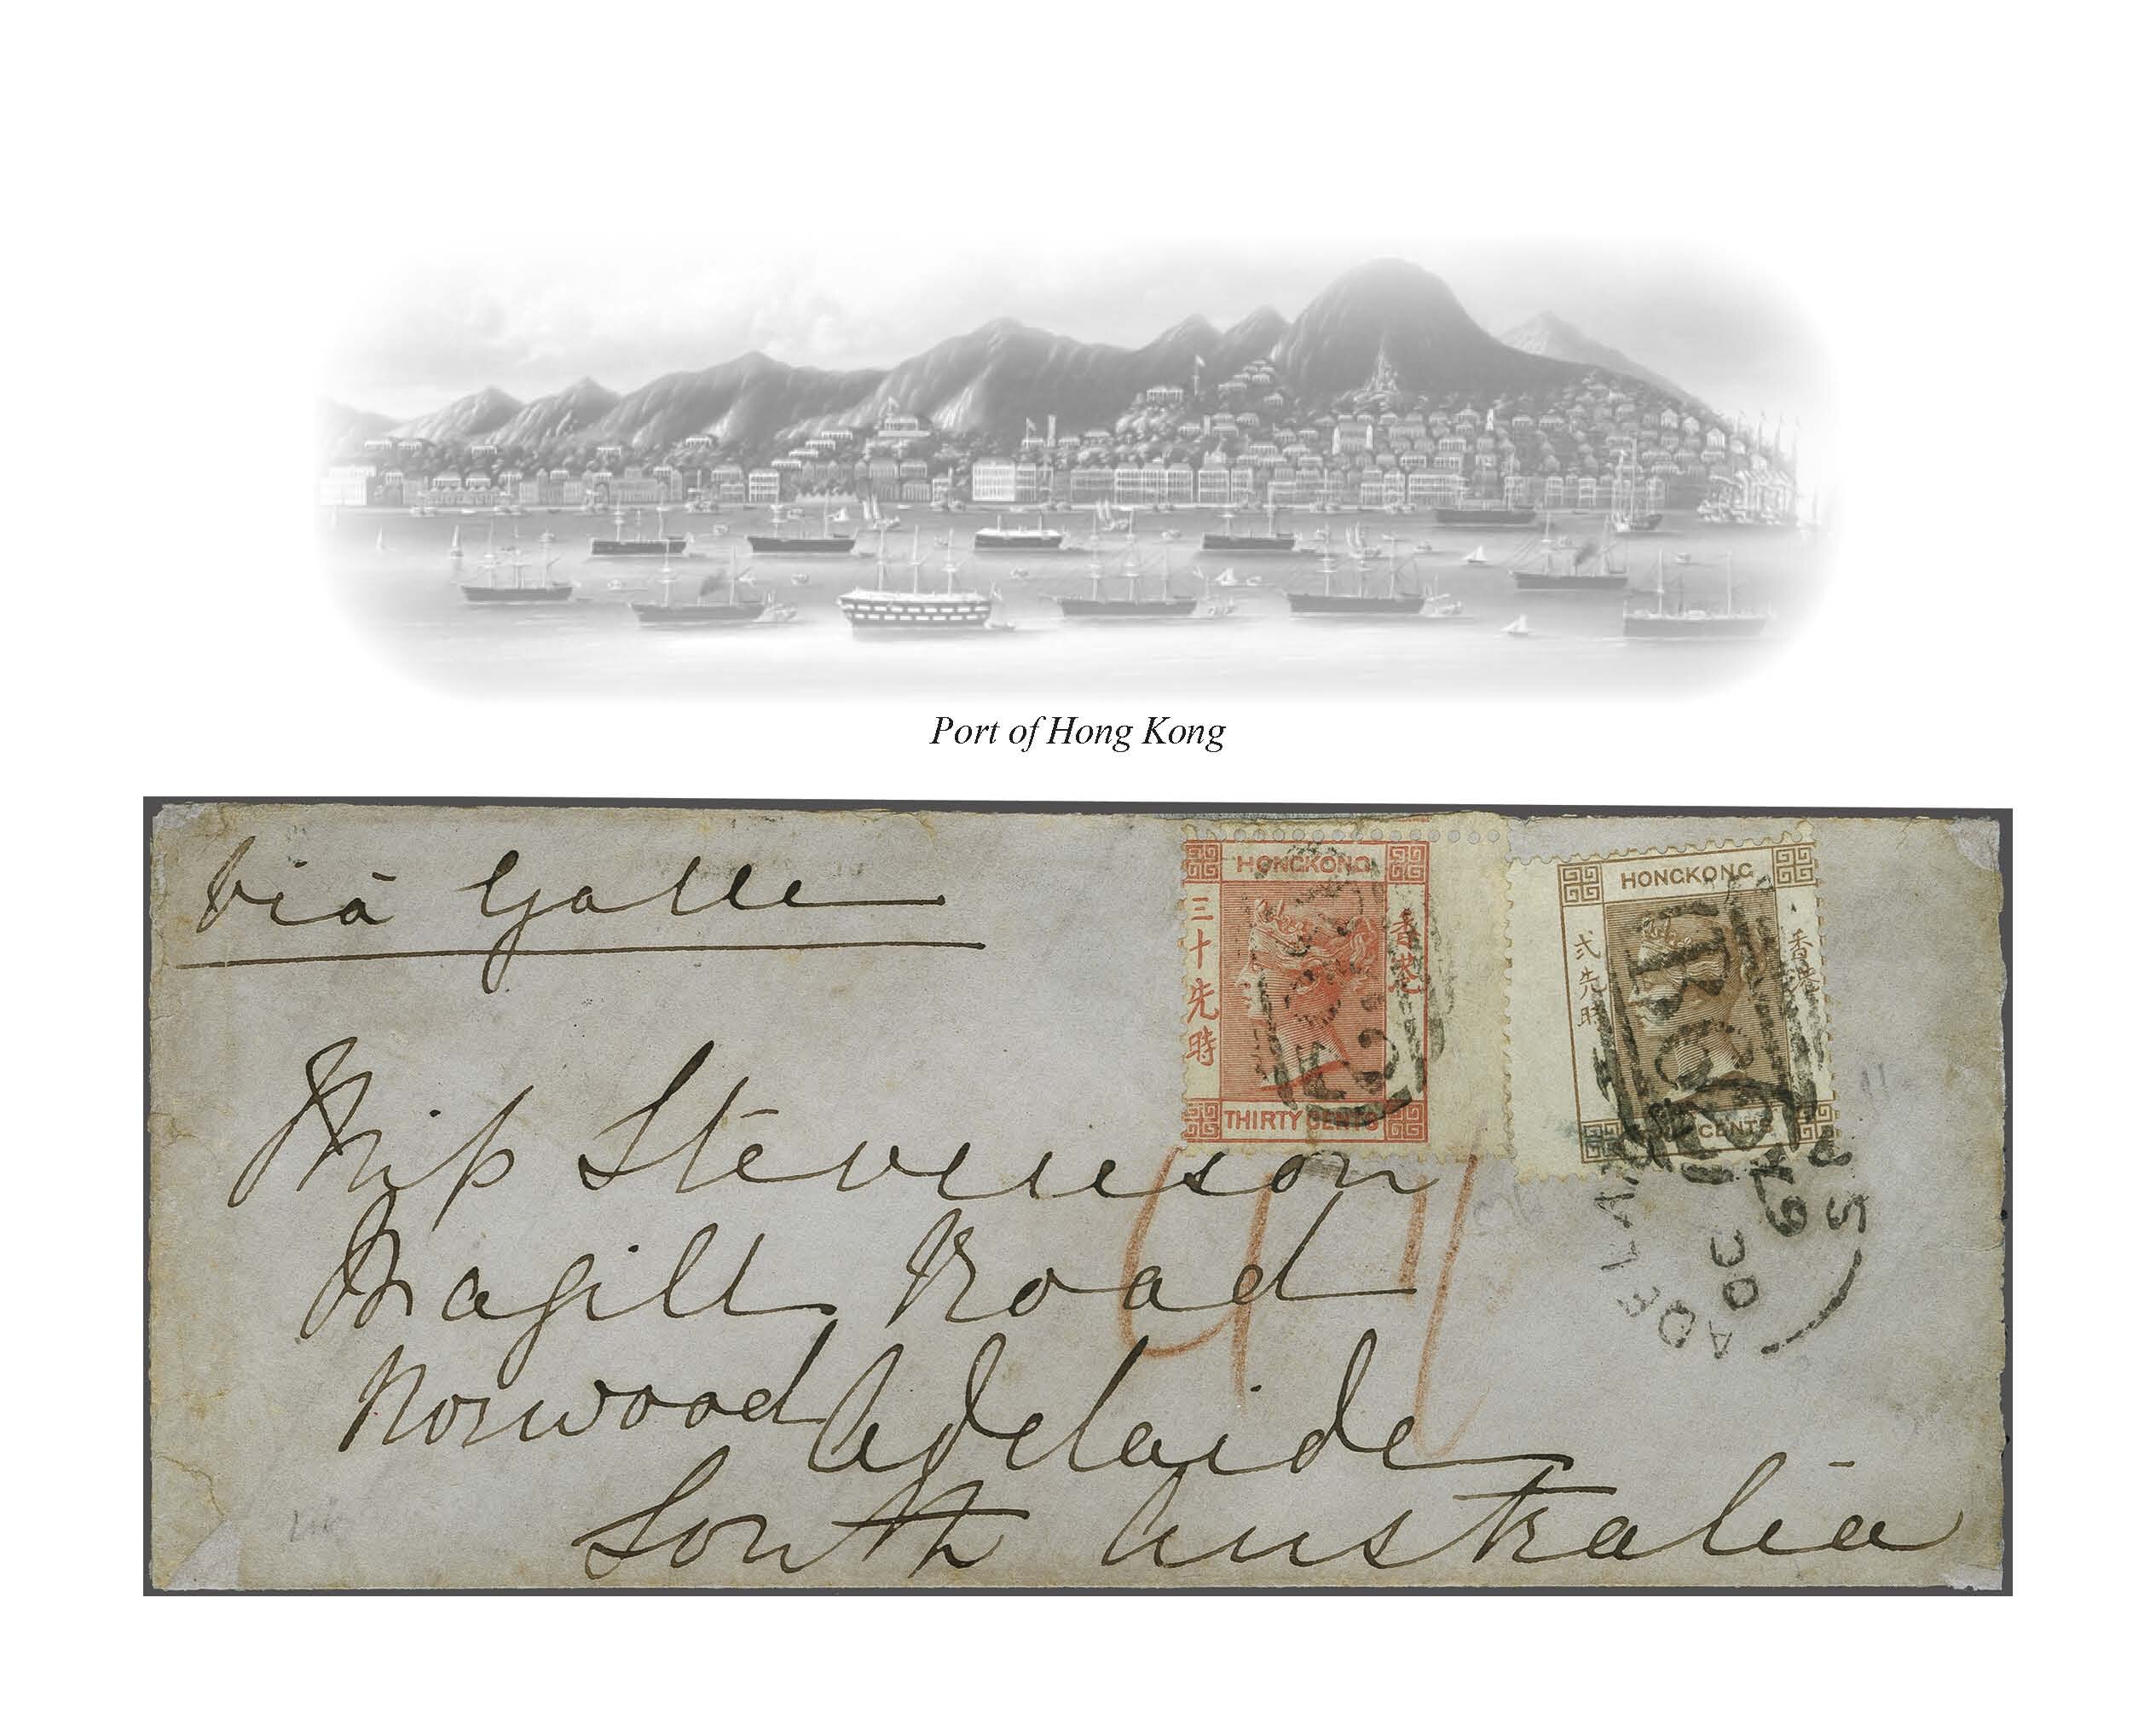 Port of Hong Kong
Viâ Galle
HONGKONG
三十先時
香港
THIRTY CENTS
HONGKONG
弍先時
香港
CENTS
Miss Stevenson
Magill Road
Norwood Adelaide
South Australia
ADELAIDE
OC
67